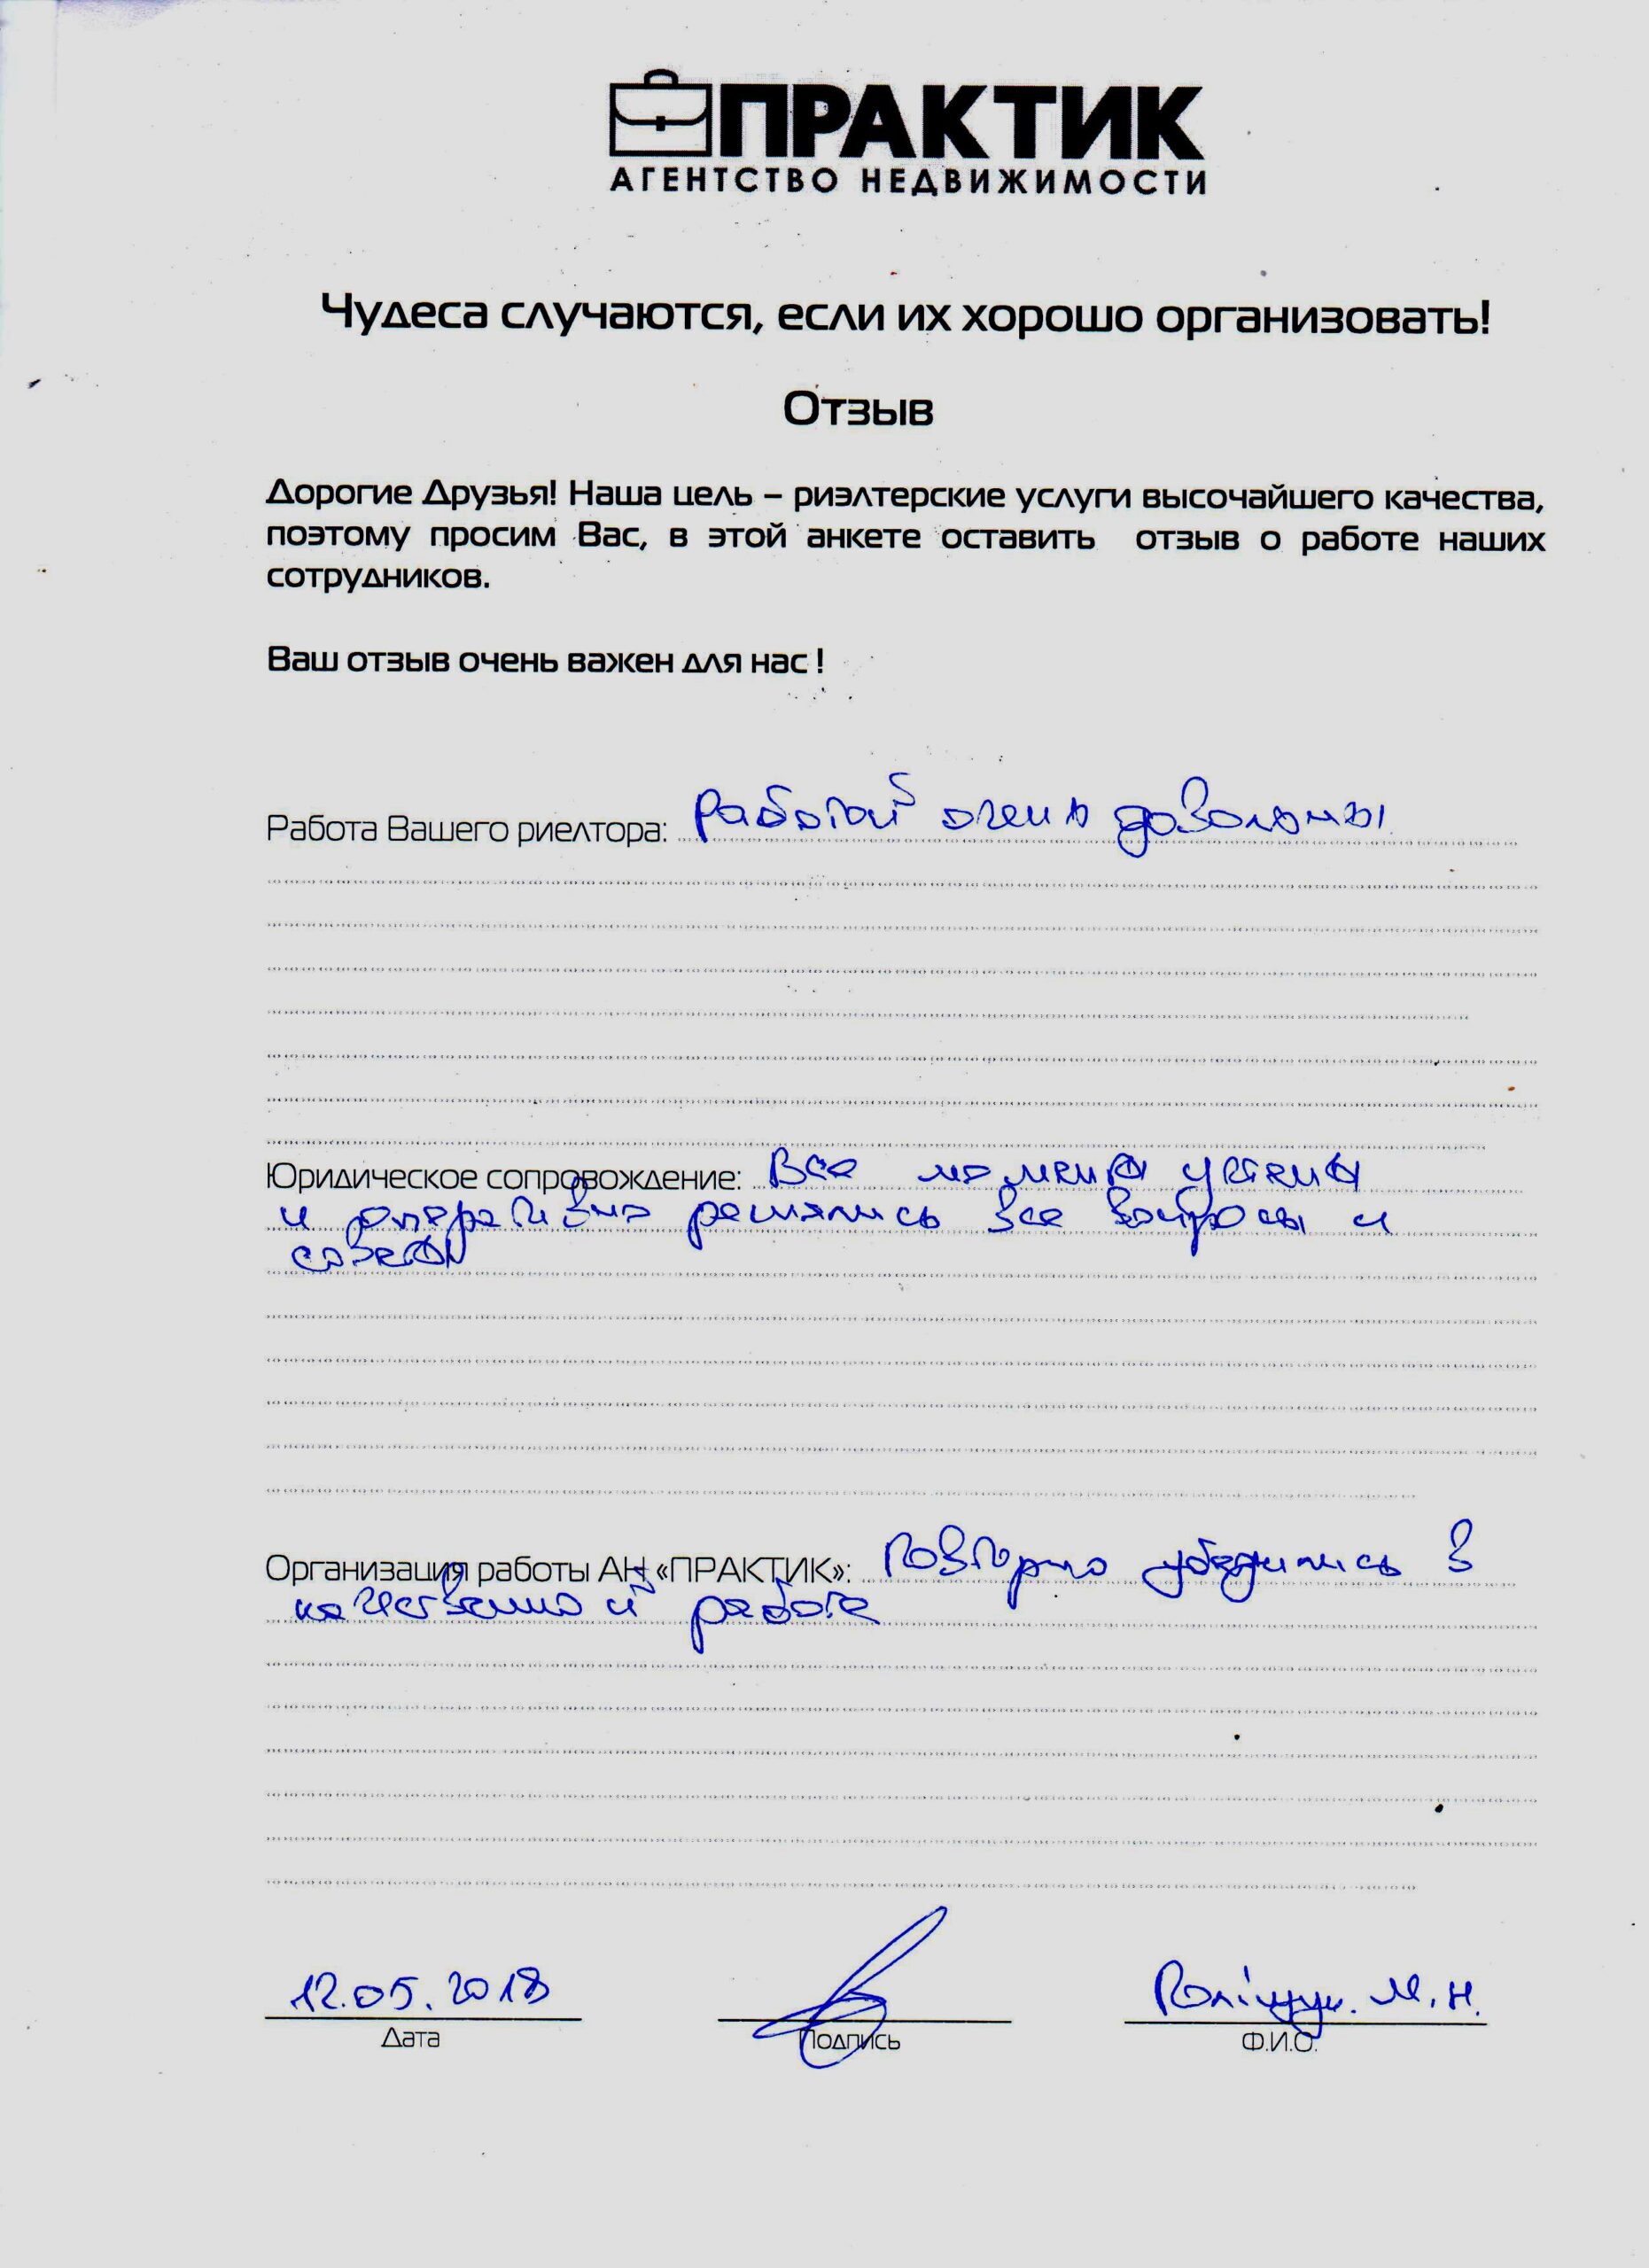 ПРАКТИК
АГЕНТСТВО НЕДВИЖИМОСТИ
Чудеса случаются, если их хорошо организовать!
Отзыв
Дорогие Друзья! Наша цель – риэлтерские услуги высочайшего качества,
поэтому просим Вас, в этой анкете оставить отзыв о работе наших
сотрудников.
Ваш отзыв очень важен для нас !
Работа Вашего риелтора: Работой очень довольны
Юридическое сопровождение: Все моменты учтены
и оперативно решались все вопросы и
советы
Организация работы АН «ПРАКТИК»: Повторно убедились в
качественной работе
12.05.2018 М.Н.
Дата Подпись Ф.И.О.